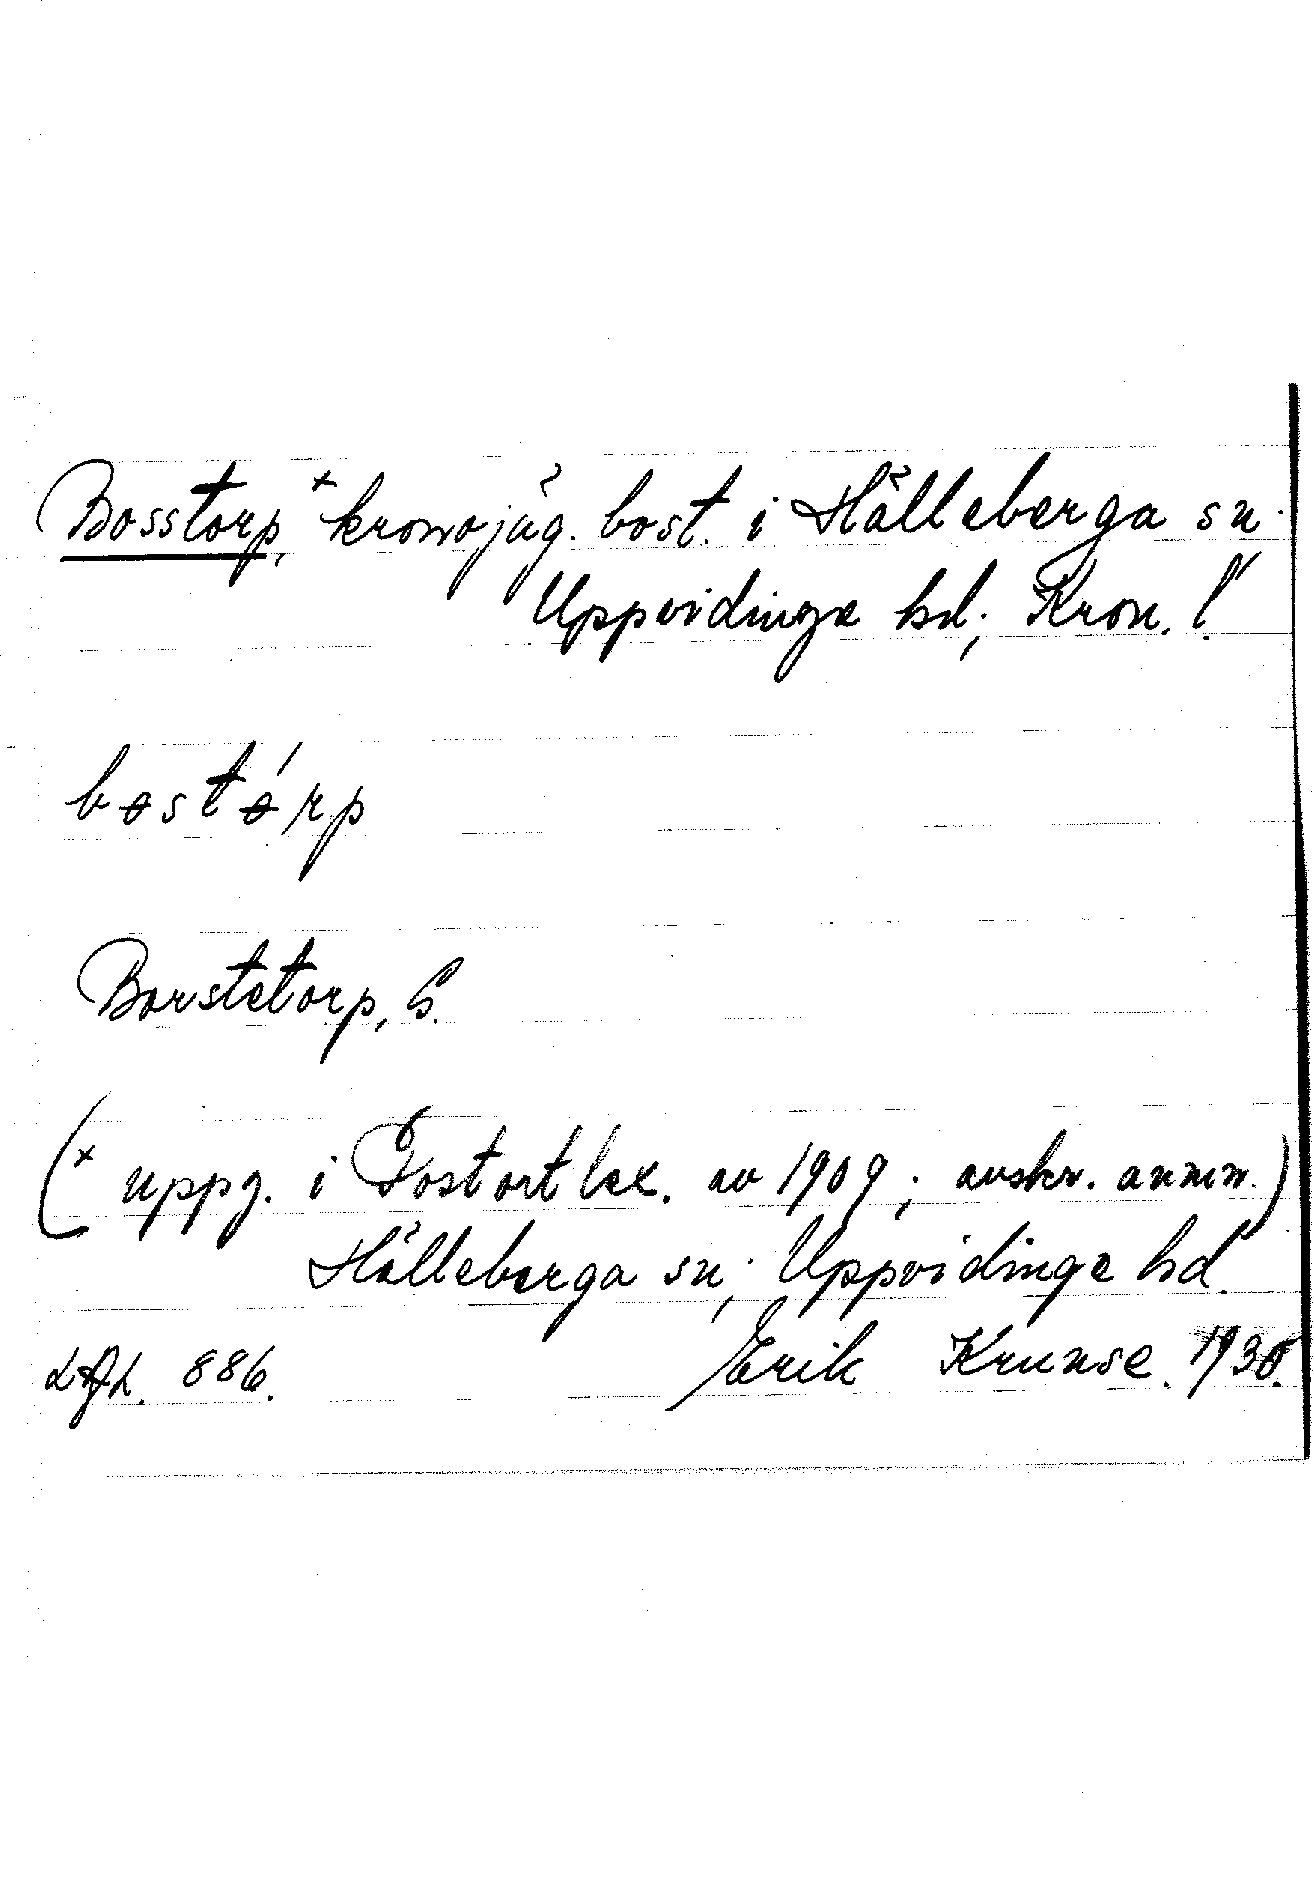 Bosstorp,ˣ kronojäg. bost. i Hälleberga sn.
Uppvidinge hd; Kron. l.
bostórp
Borstetorp, G.
(ˣ uppg. i Postortlex. av 1909; avskr. anm.)
Hälleberga sn; Uppvidinge hd
886. Erik Krunse. 1930.